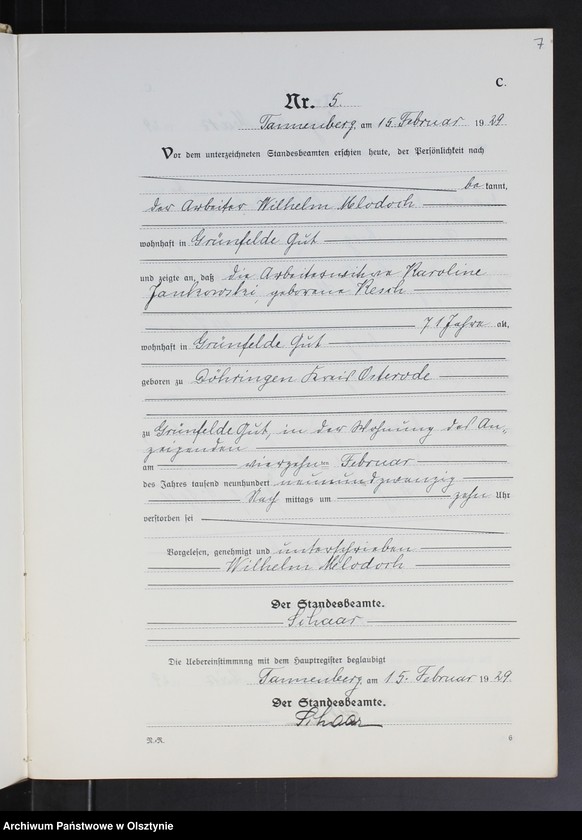 7
C.
Nr. 5.
Tannenberg, am 15. Februar 1929
Vor dem unterzeichneten Standesbeamten erschien heute, der Persönlichkeit nach
be kannt,
der Arbeiter Wilhelm Mlodoch
wohnhaft in Grünfelde Gut
und zeigte an, daß die Arbeiterwitwe Karoline
Jankowski, geborene Resch
71 Jahre alt,
wohnhaft in Grünfelde Gut
geboren zu Döhringen Kreis Osterode
zu Grünfelde Gut, in der Wohnung des An-
zeigenden
am vierzehn ten Februar
des Jahres tausend neunhundert neunundzwanzig
Nach mittags um zehn Uhr
verstorben sei
Vorgelesen, genehmigt und unterschrieben
Wilhelm Mlodoch
Der Standesbeamte.
Schaar
Die Uebereinstimmung mit dem Hauptregister beglaubigt
Tannenberg, am 15. Februar 1929.
Der Standesbeamte.
Schaar
R.-R. 6
Archiwum Państwowe w Olsztynie